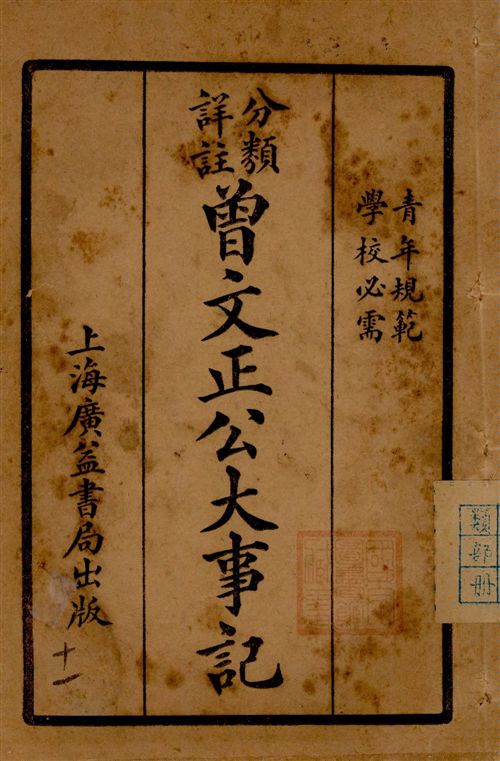 青年規範
學校必需
分類
詳註
曾文正公大事記
上海廣益書局出版
十一
類
部
冊